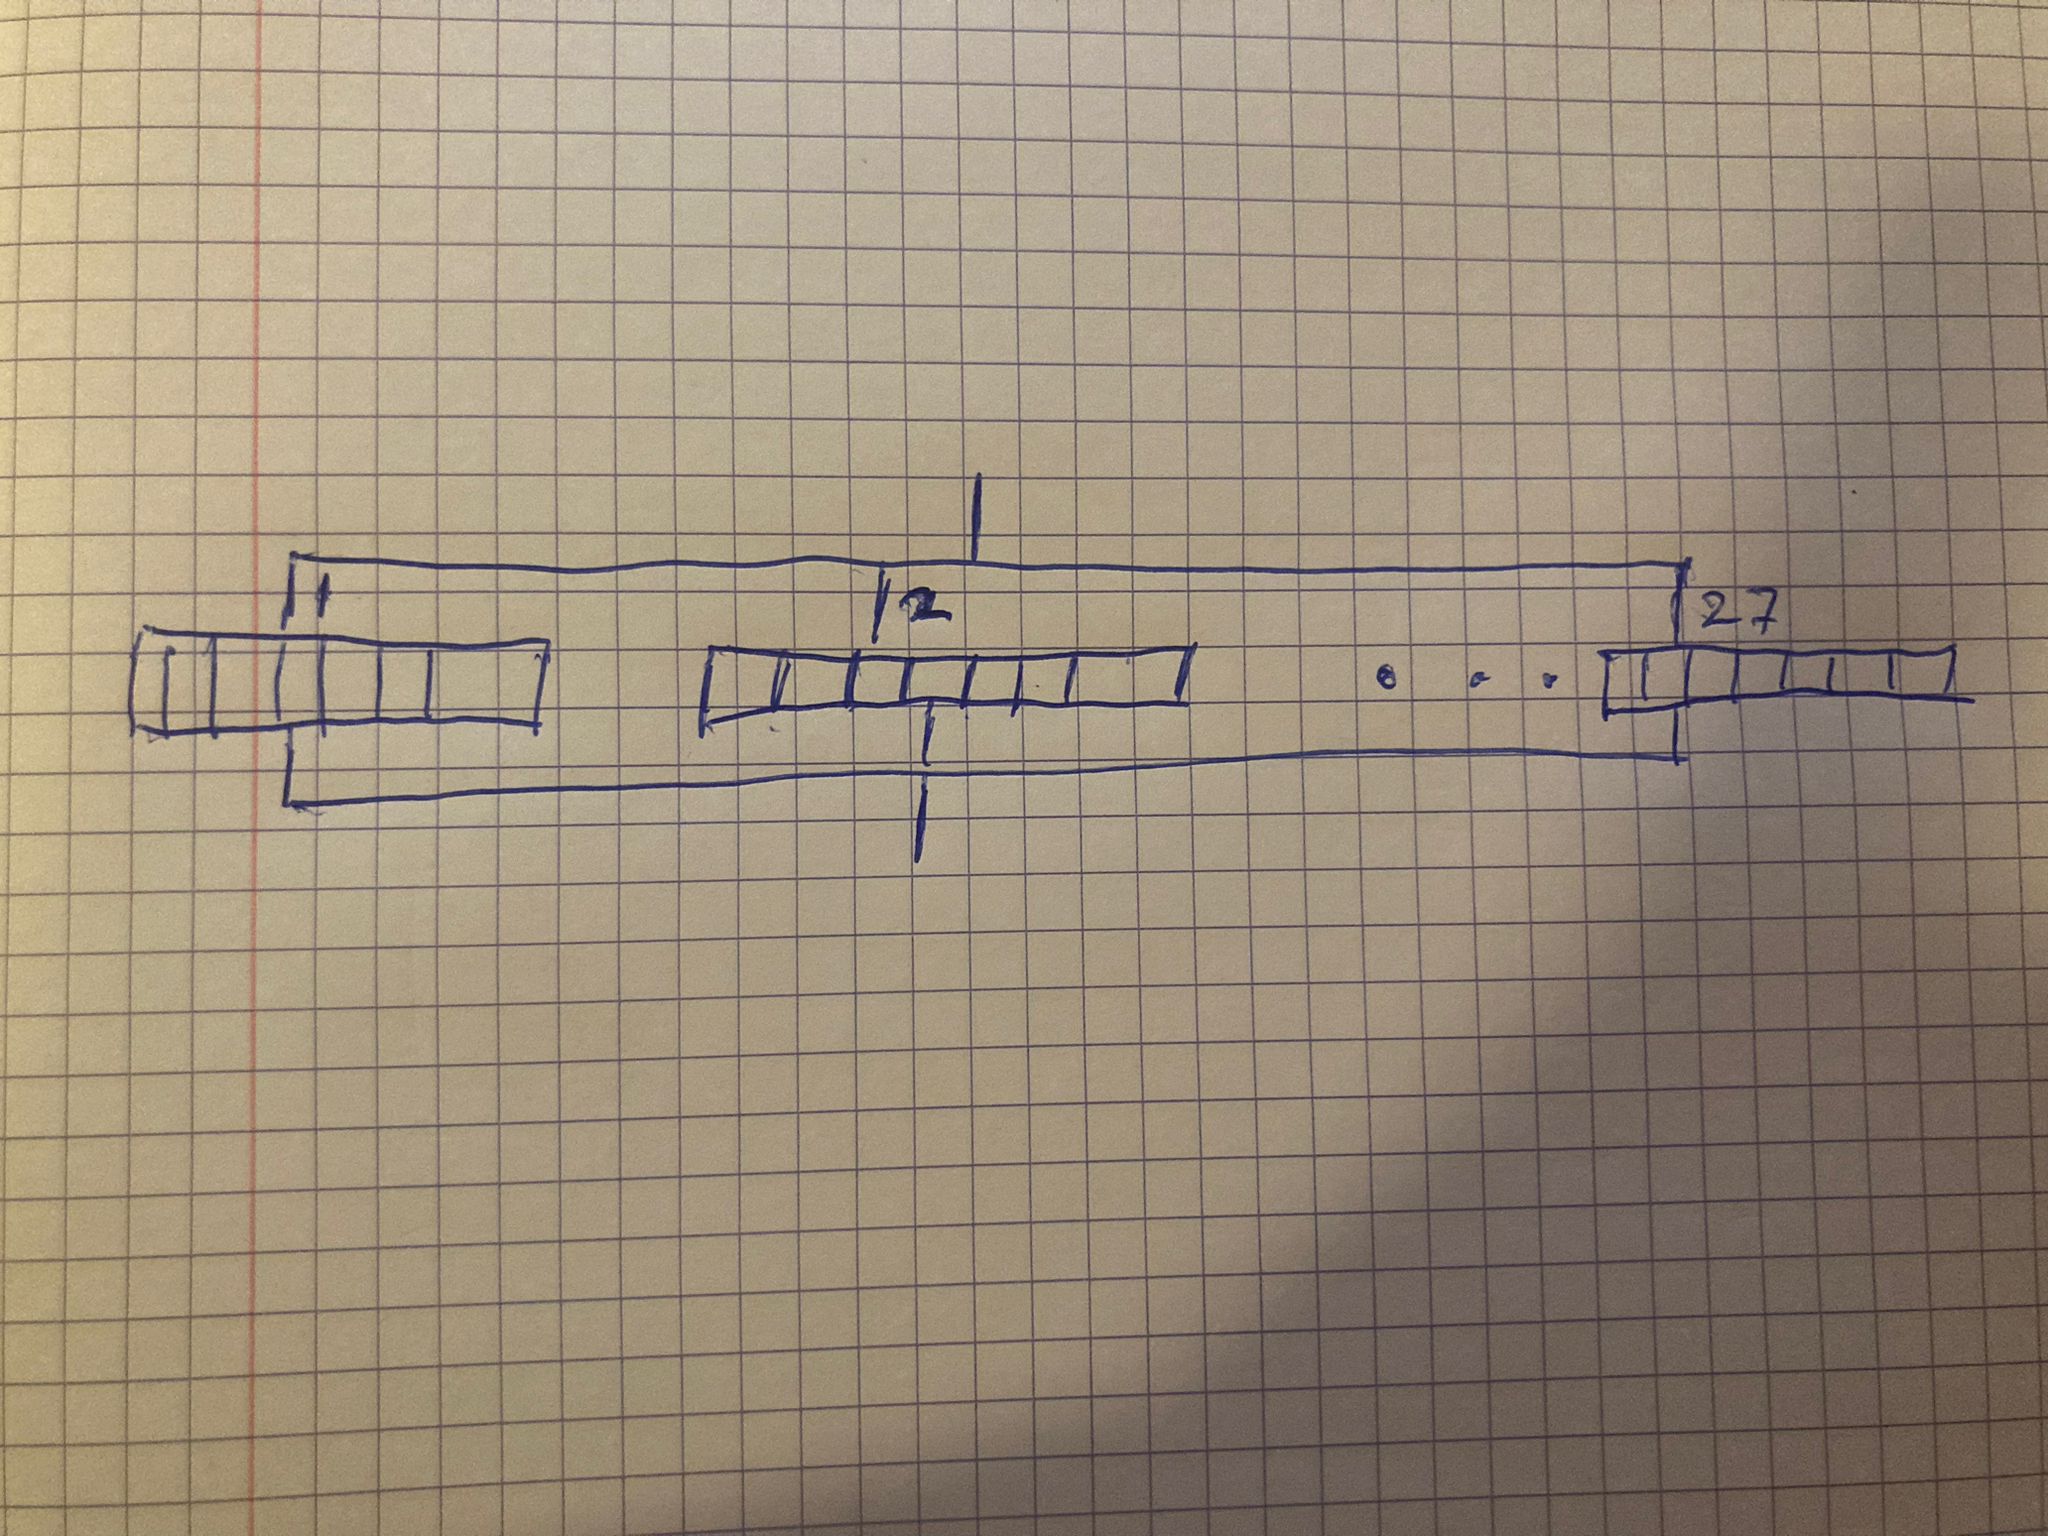 1 2 27